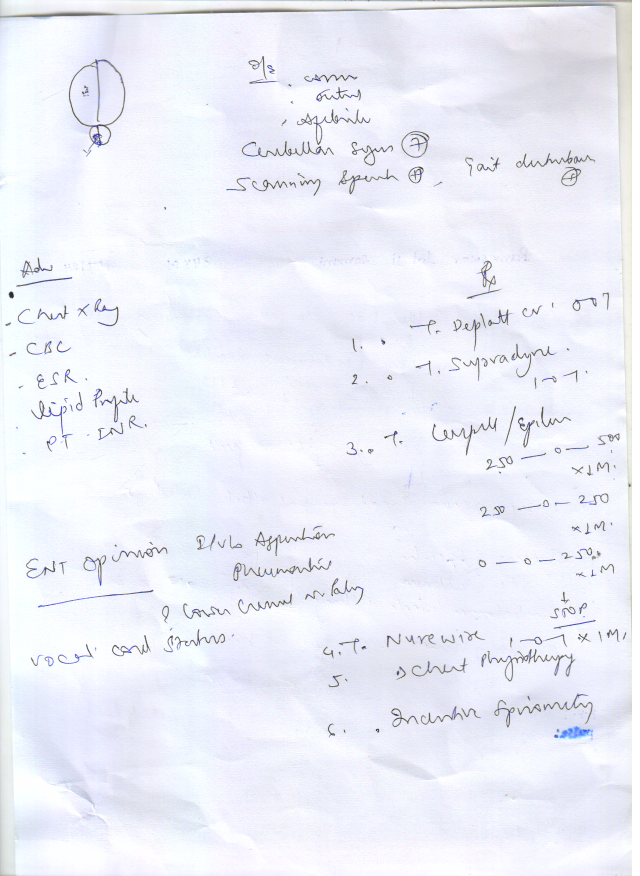 O/E
. conscious
. oriented
. Afebrile
Cerebellar signs +
Scanning Speech +, Gait disturbance +
Adv
- Chest X Ray
- CBC
- ESR.
. Lipid Profile
. PT - INR.
ENT opinion I/v/o Aspiration
Pneumonitis
& Lower Cranial n. Palsy
vocal cord status.
Rx
1. . T. Deplatt CV 0 0 1
2. . T. Supradyn.
1-0-1.
3. . T. / Epilex
250 — 0 — 500
x 1 M.
250 — 0 — 250
x 1 M.
0 — 0 — 250
x 1 M
↓
STOP
4. T. Nurewise 1-0-1 x 1 M.
5. Chest Physiotherapy
6. . Incentive Spirometry